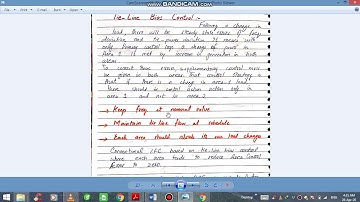 WWW.BANDICAM.COM
Tie-Line Bias Control :-
Following a change in
load, there will be steady state error of freq.
deviation and tie-power deviation. It means with
only Primary control loop a change of power in
Area 1 is met by increase in generation in both
areas.
To correct these errors, supplementary control must
be given in both areas. That control strategy is
that if there is a change in area 1 load
there should be control action only in
area 1 and not in area 2.
→ Keep freq. at nominal value
→ Maintain tie line flow at schedule
→ Each area should absorb its own load changes
Conventional LFC based on tie-line bias control
where each area tends to reduce Area Control
Error to zero.
Desktop
4:25 AM